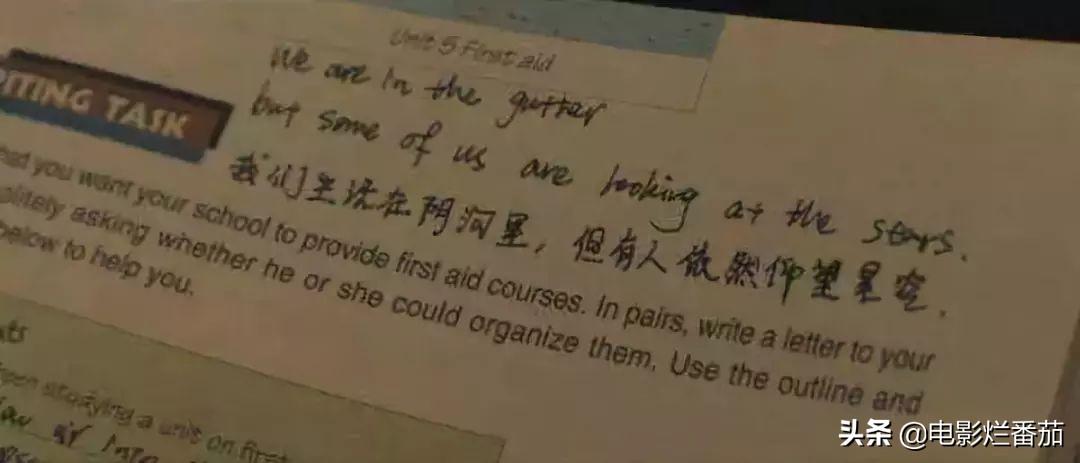 Unit 5 First aid
We are in the gutter
but some of us are looking at the stars.
我们生活在阴沟里，但有人依然仰望星空.
ITING TASK
you want your school to provide first aid courses. In pairs, write a letter to your
olitely asking whether he or she could organize them. Use the outline and
below to help you.
studying a unit on first
头条 @电影烂番茄